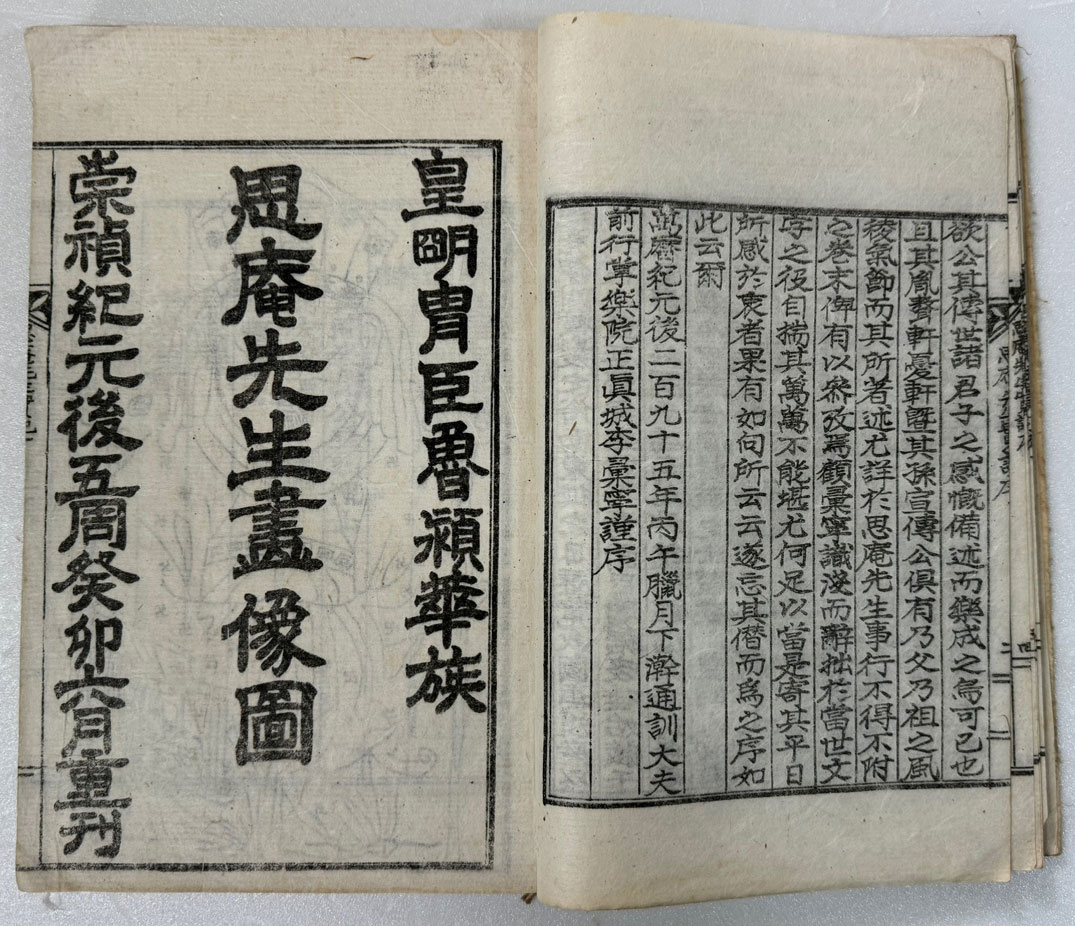 欲公其傳世諸君子之感慨備述而樂成之烏可已也
且其胤聱軒憂軒曁其孫宣傳公俱有乃父乃祖之風
稜氣節而其所著述尤詳於思庵先生事行不得不附
之卷末俾有以叅攷焉顧彙寧識淺而辭拙於當世文
字之役自揣其萬萬不能堪尤何足以當是寄其平日
所感於衷者果有如向所云云遂忘其僭而爲之序如
此云爾
萬曆紀元後二百九十五年丙午臘月下澣通訓大夫
前行掌樂院正眞城李彙寧謹序
皇朙胄臣魯潁華族
思庵先生畫像圖
崇禎紀元後五周癸卯六月重刊